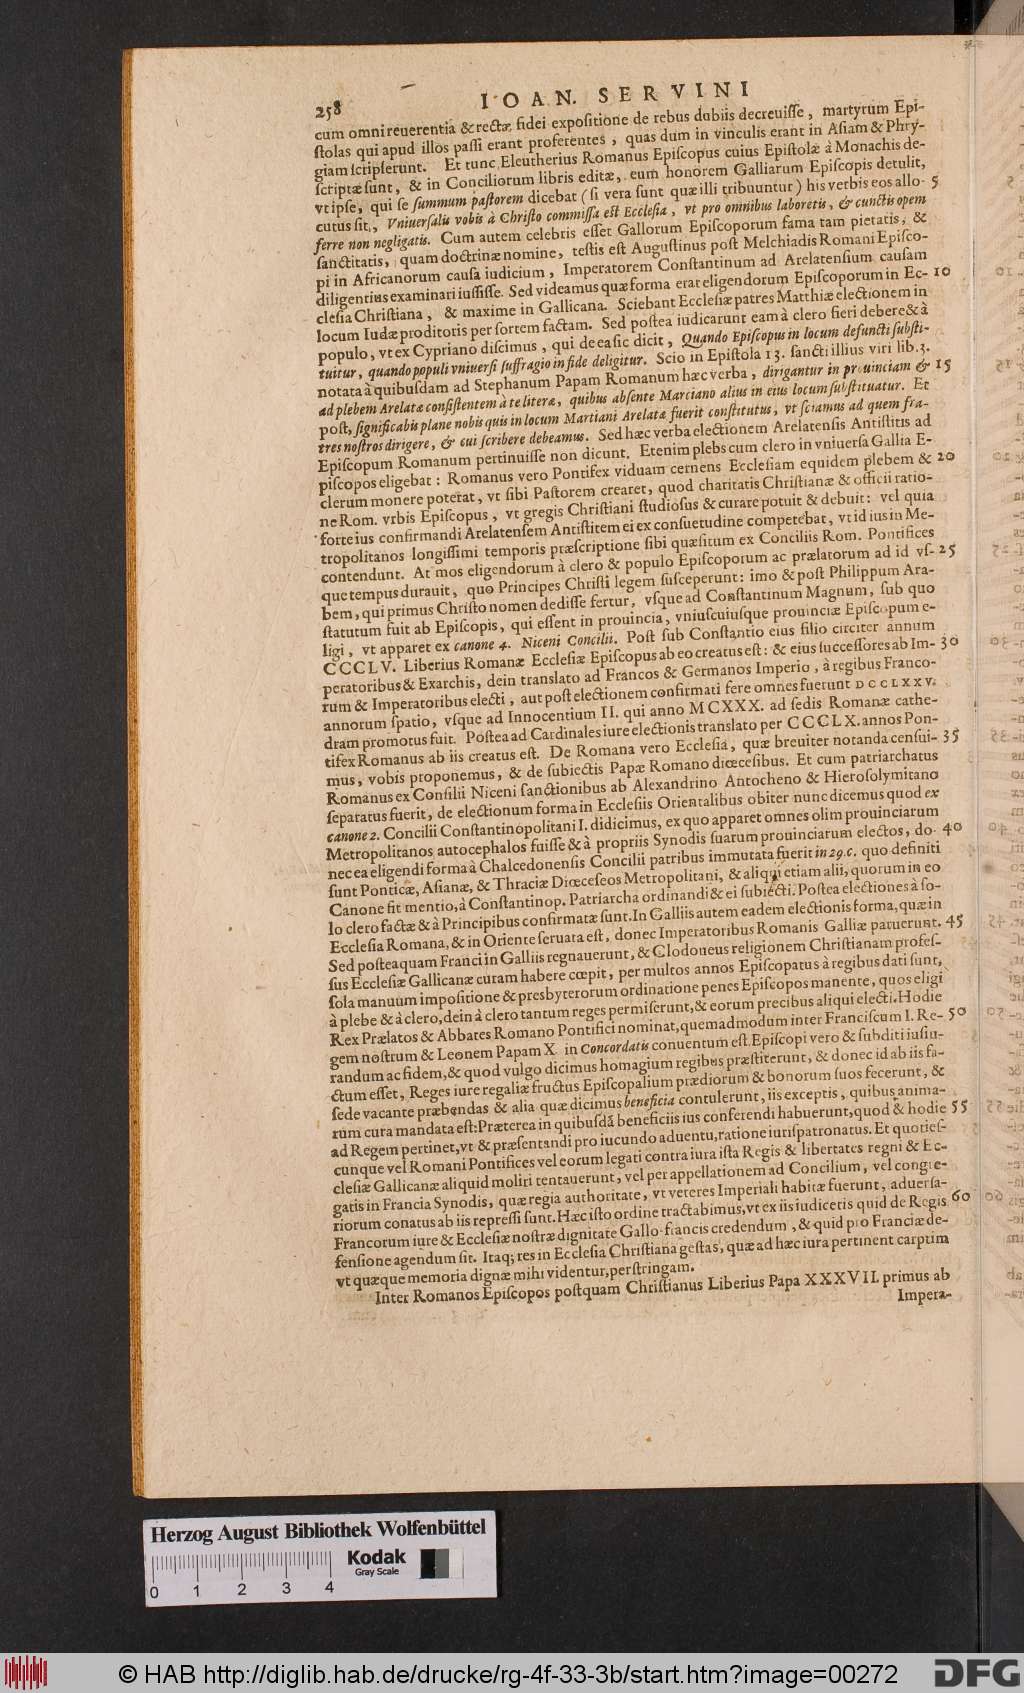 258 IOAN. SERVINI
cum omni reuerentia & rectæ fidei expositione de rebus dubiis decreuisse, martyrum Epi-
stolas qui apud illos passi erant proferentes, quas dum in vinculis erant in Asiam & Phry-
giam scripserunt. Et tunc Eleutherius Romanus Episcopus cuius Epistolæ à Monachis de-
scriptæ sunt, & in Conciliorum libris editæ, eum honorem Galliarum Episcopis detulit,
vt ipse, qui se summum pastorem dicebat (si vera sunt quæ illi tribuuntur) his verbis eos allo- 5
cutus sit, Vniuersalis vobis à Christo commissa est Ecclesia, vt pro omnibus laboretis, & cunctis opem
ferre non negligatis. Cum autem celebris esset Gallorum Episcoporum fama tam pietatis, &
sanctitatis, quam doctrinæ nomine, testis est Augustinus post Melchiadis Romani Episco-
pi in Africanorum causa iudicium, Imperatorem Constantinum ad Arelatensium causam
diligentius examinari iussisse. Sed videamus quæ forma erat eligendorum Episcoporum in Ec- 10
clesia Christiana, & maxime in Gallicana. Sciebant Ecclesiæ patres Matthiæ electionem in
locum Iudæ proditoris per sortem factam. Sed postea iudicarunt eam à clero fieri debere & à
populo, vt ex Cypriano discimus, qui de ea sic dicit, Quando Episcopus in locum defuncti substi-
tuitur, quando populi vniuersi suffragio in fide deligitur. Scio in Epistola 13. sancti illius viri lib. 3.
notata à quibusdam ad Stephanum Papam Romanum hæc verba, dirigantur in prouinciam & 15
ad plebem Arelatæ consistentem à te literæ, quibus absente Marciano alius in eius locum substituatur. Et
post, significabis plane nobis quis in locum Martiani Arelatæ fuerit constitutus, vt sciamus ad quem fra-
tres nostros dirigere, & cui scribere debeamus. Sed hæc verba electionem Arelatensis Antistitis ad
Episcopum Romanum pertinuisse non dicunt. Etenim plebs cum clero in vniuersa Gallia E-
piscopos eligebat: Romanus vero Pontifex viduam cernens Ecclesiam equidem plebem & 20
clerum monere poterat, vt sibi Pastorem crearet, quod charitatis Christianæ & officii ratio-
ne Rom. vrbis Episcopus, vt gregis Christiani studiosus & curare potuit & debuit: vel quia
forte ius confirmandi Arelatensem Antistitem ei ex consuetudine competebat, vt id ius in Me-
tropolitanos longissimi temporis præscriptione sibi quæsitum ex Conciliis Rom. Pontifices
contendunt. At mos eligendorum à clero & populo Episcoporum ac prælatorum ad id vs- 25
que tempus durauit, quo Principes Christi legem susceperunt: imo & post Philippum Ara-
bem, qui primus Christo nomen dedisse fertur, vsque ad Constantinum Magnum, sub quo
statutum fuit ab Episcopis, qui essent in prouincia, vniuscuiusque prouinciæ Episcopum e-
ligi, vt apparet ex canone 4. Niceni Concilii. Post sub Constantio eius filio circiter annum
CCCLV. Liberius Romanæ Ecclesiæ Episcopus ab eo creatus est: & eius successores ab Im- 30
peratoribus & Exarchis, dein translato ad Francos & Germanos Imperio, à regibus Franco-
rum & Imperatoribus electi, aut post electionem confirmati fere omnes fuerunt DCCLXXV.
annorum spatio, vsque ad Innocentium II. qui anno MCXXX. ad sedis Romanæ cathe-
dram promotus fuit. Postea ad Cardinales iure electionis translato per CCCLX. annos Pon-
tifex Romanus ab iis creatus est. De Romana vero Ecclesia, quæ breuiter notanda censui- 35
mus, vobis proponemus, & de subiectis Papæ Romano diœcesibus. Et cum patriarchatus
Romanus ex Consilii Niceni sanctionibus ab Alexandrino Antocheno & Hierosolymitano
separatus fuerit, de electionum forma in Ecclesiis Orientalibus obiter nunc dicemus quod ex
canone 2. Concilii Constantinopolitani I. didicimus, ex quo apparet omnes olim prouinciarum
Metropolitanos autocephalos fuisse & à propriis Synodis suarum prouinciarum electos, do- 40
nec ea eligendi forma à Chalcedonensis Concilii patribus immutata fuerit in 29. c. quo definiti
sunt Ponticæ, Asianæ, & Thraciæ Diœceseos Metropolitani, & aliqui etiam alii, quorum in eo
Canone fit mentio, à Constantinop. Patriarcha ordinandi & ei subiecti. Postea electiones à so-
lo clero factæ & à Principibus confirmatæ sunt. In Galliis autem eadem electionis forma, quæ in
Ecclesia Romana, & in Oriente seruata est, donec Imperatoribus Romanis Galliæ paruerunt. 45
Sed posteaquam Franci in Galliis regnauerunt, & Clodoueus religionem Christianam profes-
sus Ecclesiæ Gallicanæ curam habere cœpit, per multos annos Episcopatus à regibus dati sunt,
sola manuum impositione & presbyterorum ordinatione penes Episcopos manente, quos eligi
à plebe & à clero, dein à clero tantum reges permiserunt, & eorum precibus aliqui electi. Hodie
Rex Prælatos & Abbates Romano Pontifici nominat, quemadmodum inter Franciscum I. Re- 50
gem nostrum & Leonem Papam X. in Concordatis conuentum est. Episcopi vero & subditi iusiu-
randum ac fidem, & quod vulgo dicimus homagium regibus præstiterunt, & donec id ab iis fa-
ctum esset, Reges iure regaliæ fructus Episcopalium prædiorum & bonorum suos fecerunt, &
sede vacante præbendas & alia quæ dicimus beneficia contulerunt, iis exceptis, quibus anima-
rum cura mandata est: Præterea in quibusdã beneficiis ius conferendi habuerunt, quod & hodie 55
ad Regem pertinet, vt & præsentandi pro iucundo aduentu, ratione iuris patronatus. Et quoties-
cunque vel Romani Pontifices vel eorum legati contra iura ista Regis & libertates regni & Ec-
clesiæ Gallicanæ aliquid moliri tentauerunt, vel per appellationem ad Concilium, vel congre-
gatis in Francia Synodis, quæ regia authoritate, vt veteres Imperiali habitæ fuerunt, aduersa-
riorum conatus ab iis repressi sunt. Hæc isto ordine tractabimus, vt ex iis iudicetis quid de Regis 60
Francorum iure & Ecclesiæ nostræ dignitate Gallo-francis credendum, & quid pro Franciæ de-
fensione agendum sit. Itaq; res in Ecclesia Christiana gestas, quæ ad hæc iura pertinent carptim
vt quæque memoria dignæ mihi videntur, perstringam.
Inter Romanos Episcopos postquam Christianus Liberius Papa XXXVII. primus ab
Impera-
Herzog August Bibliothek Wolfenbüttel
Kodak
Gray Scale
0 1 2 3 4
© HAB http://diglib.hab.de/drucke/rg-4f-33-3b/start.htm?image=00272
DFG